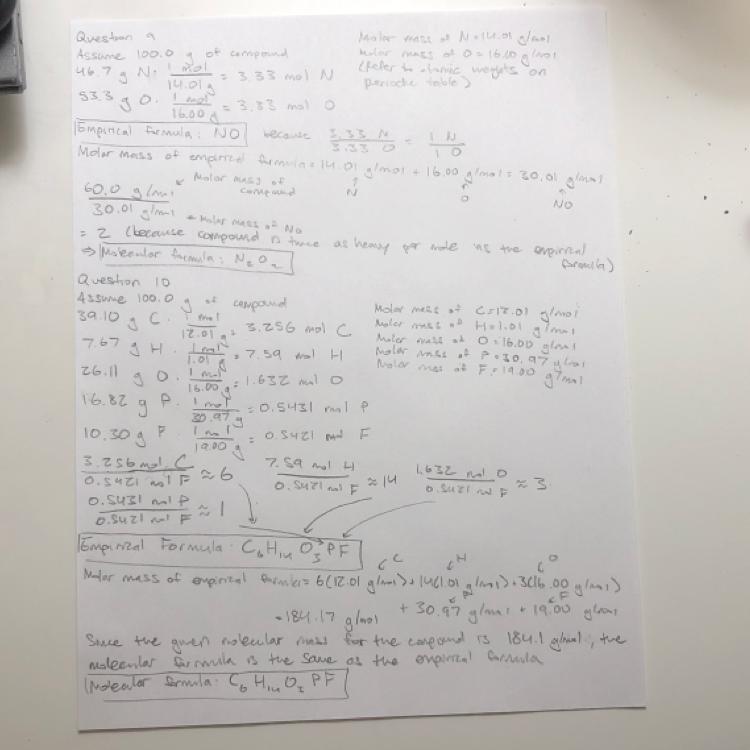 Question 9
Assume 100.0 g of compound
Molar mass of N = 14.01 g/mol
Molar mass of O = 16.00 g/mol
(Refer to atomic weights on
periodic table)
46.7 g N · 1 mol / 14.01 g = 3.33 mol N
53.3 g O · 1 mol / 16.00 g = 3.33 mol O
Empirical formula: NO because 3.33 N / 3.33 O = 1 N / 1 O
Molar mass of empirical formula = 14.01 g/mol + 16.00 g/mol = 30.01 g/mol
N O NO
60.0 g/mol ← Molar mass of compound
30.01 g/mol ← Molar mass of NO
= 2 (because compound is twice as heavy per mole as the empirical
formula)
⇒ Molecular formula: N2O2
Question 10
Assume 100.0 g of compound
Molar mass of C = 12.01 g/mol
Molar mass of H = 1.01 g/mol
Molar mass of O = 16.00 g/mol
Molar mass of P = 30.97 g/mol
Molar mass of F = 19.00 g/mol
39.10 g C · 1 mol / 12.01 g = 3.256 mol C
7.67 g H · 1 mol / 1.01 g = 7.59 mol H
26.11 g O · 1 mol / 16.00 g = 1.632 mol O
16.82 g P · 1 mol / 30.97 g = 0.5431 mol P
10.30 g F · 1 mol / 19.00 g = 0.5421 mol F
3.256 mol C / 0.5421 mol F ≈ 6 7.59 mol H / 0.5421 mol F ≈ 14 1.632 mol O / 0.5421 mol F ≈ 3
0.5431 mol P / 0.5421 mol F ≈ 1
Empirical Formula: C6H14O3PF
C H O
Molar mass of empirical formula = 6(12.01 g/mol) + 14(1.01 g/mol) + 3(16.00 g/mol)
P F
+ 30.97 g/mol + 19.00 g/mol
= 184.17 g/mol
Since the given molecular mass for the compound is 184.1 g/mol, the
molecular formula is the same as the empirical formula
Molecular formula: C6H14O3PF